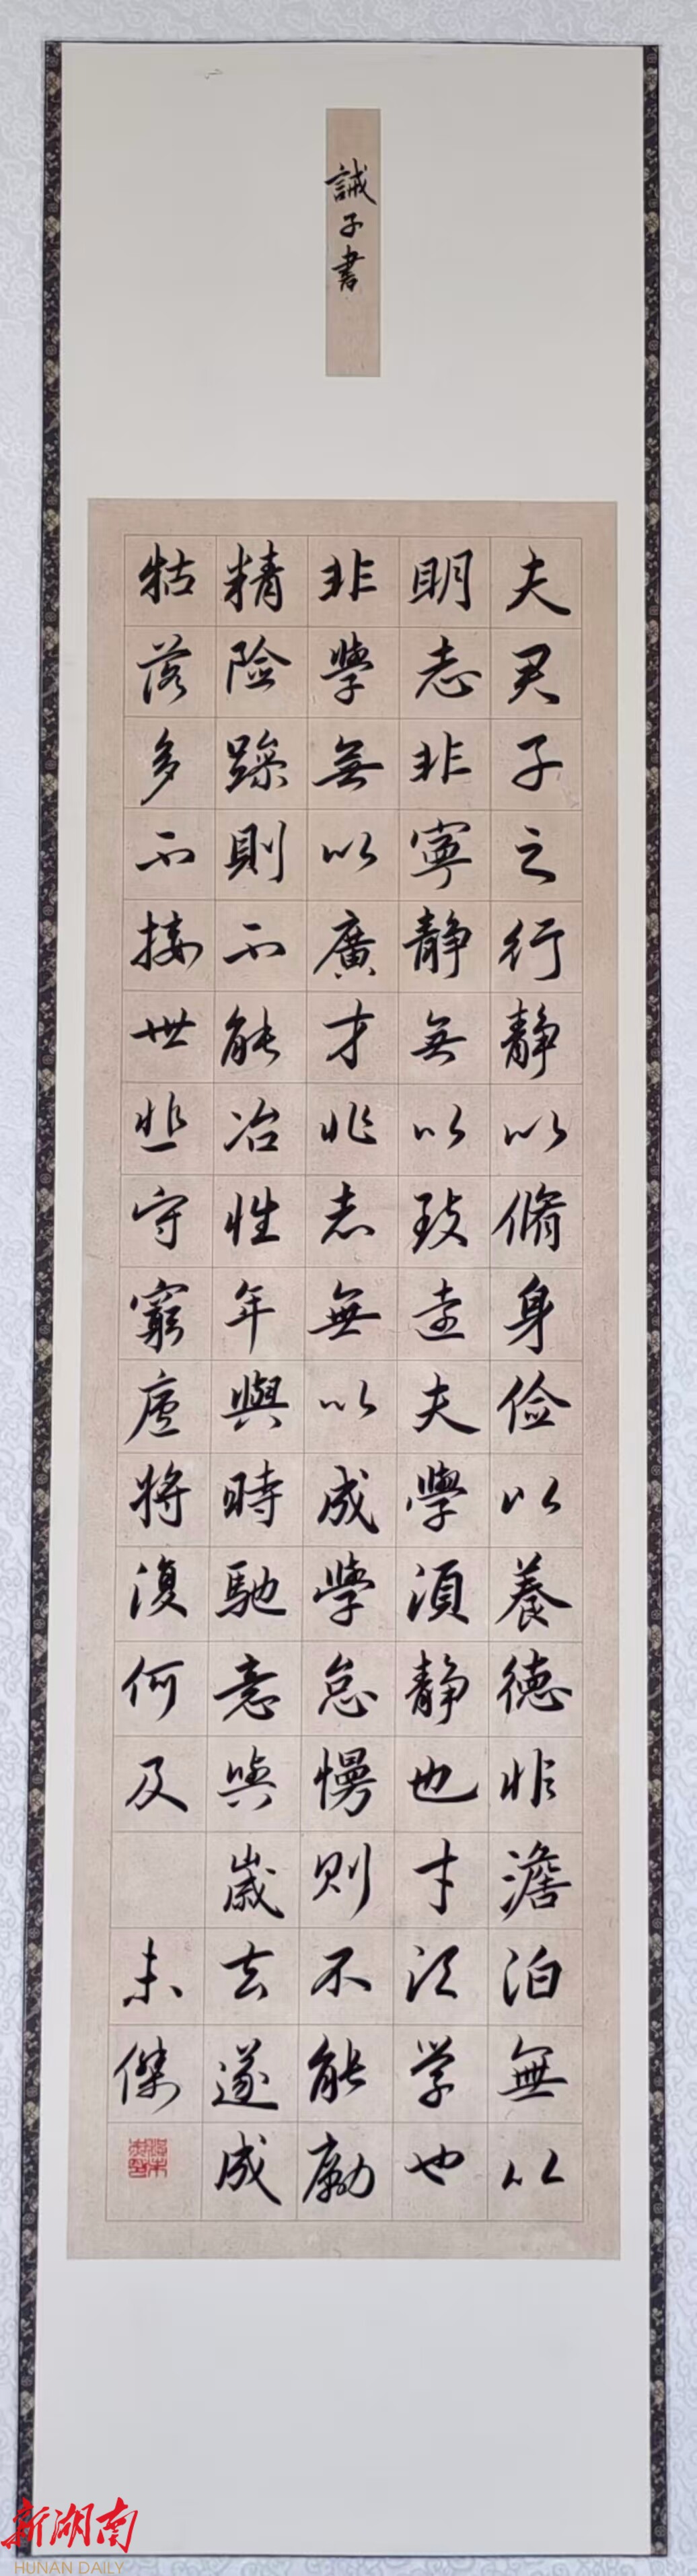 誡子書
夫君子之行静以脩身俭以養德非澹泊無以
明志非寧静無以致遠夫學須静也才須学也
非學無以廣才非志無以成學怠慢则不能勵
精险躁則不能冶性年與時馳意與歲去遂成
枯落多不接世悲守窮廬將復何及
未傑
新湖南
HUNAN DAILY